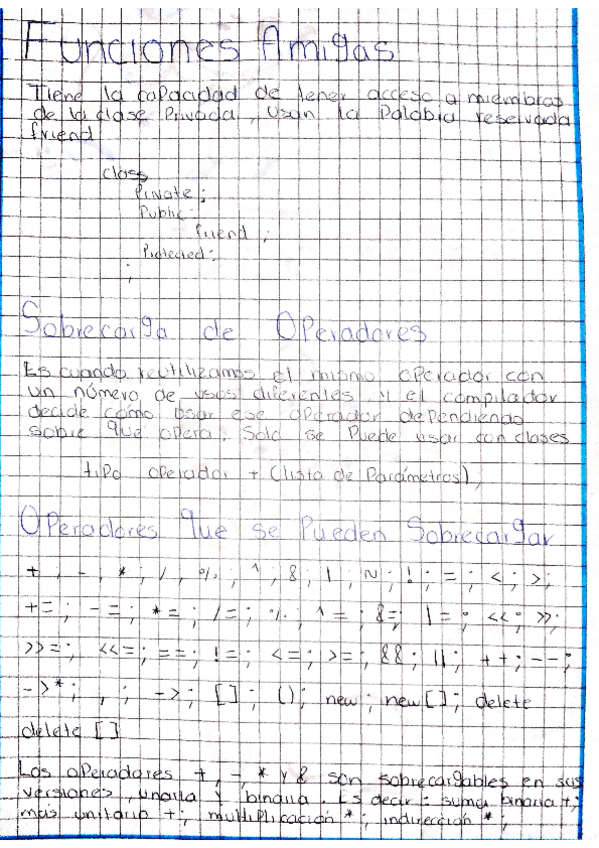 Funciones Amigas
Tiene la capacidad de tener acceso a miembros
de la clase Privada, usan la Palabra reservada
friend
class
Private;
Public:
friend ;
Protected:
;
Sobrecarga de Operadores
Es cuando reutilizamos el mismo operador con
un número de usos diferentes y el compilador
decide cómo usar ese operador dependiendo
sobre que opera. Solo se Puede usar con clases
tipo operador + (lista de Parámetros),
Operadores que se Pueden Sobrecargar
+ , - , * ; / , % ; ^ , & ; | , ~ ; ! ; = ; < ; > ;
+= ; -= ; *= ; /= ; % ; ^= ; &= ; |= ; << ; >> ;
>>= ; <<= ; == ; != ; <= ; >= , && ; || ; ++ ; -- ;
->* ; , ; -> ; [] ; () ; new ; new [] ; delete
delete []
Los operadores +, -, * y & son sobrecargables en sus
versiones, unaria y binaria. Es decir: suma binaria +;
más unitario +; multiplicación *; indirección *;